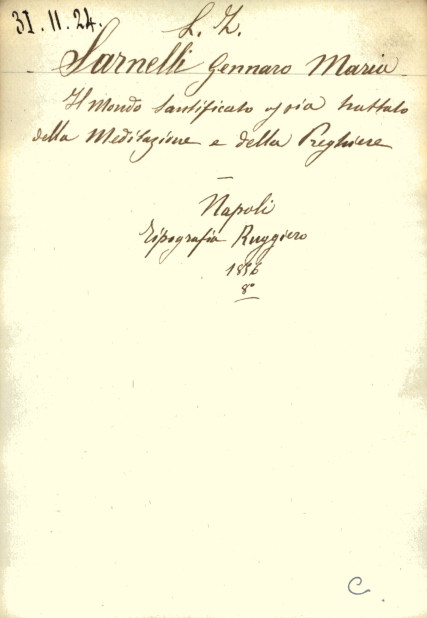 31. 11. 24.
S. Z.
Sarnelli Gennaro Maria
Il Mondo Santificato ossia trattato
della Meditazione e della Preghiera
Napoli
Tipografia Ruggiero
1856
8°
C